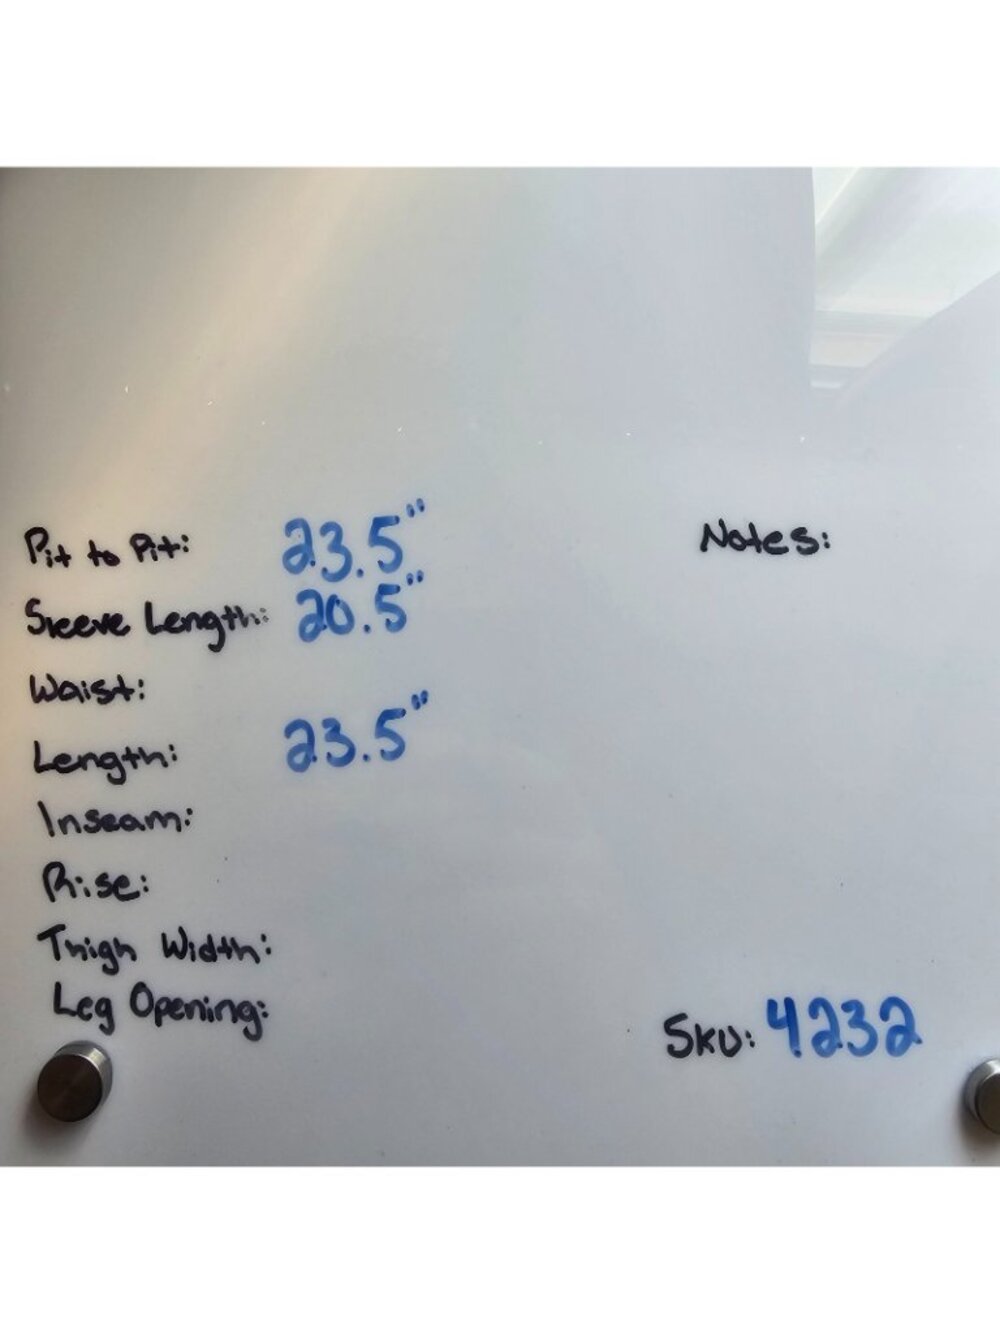 Pit to Pit: 23.5"
Sleeve Length: 20.5"
Waist:
Length: 23.5"
Inseam:
Rise:
Thigh Width:
Leg Opening:
Notes:
SKU: 4232